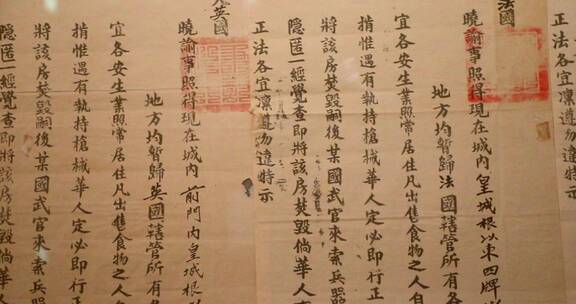 法國
曉諭事照得現在城內皇城根以東四牌
地方均暫歸法國轄管所有各
宜各安生業照常居住凡出售食物之人自
捎惟遇有執持槍械華人定必即行正
將該房焚毀嗣後某國武官來索兵器
隱匿一經覺查即將該房焚毀倘華人
正法各宜凜遵勿違特示
英國
曉諭事照得現在城內前門內皇城根
地方均暫歸英國轄管所有各
宜各安生業照常居住凡出售食物之人
捎惟遇有執持槍械華人定必即行正
將該房焚毀嗣後某國武官來索兵器
隱匿一經覺查即將該房焚毀倘華人